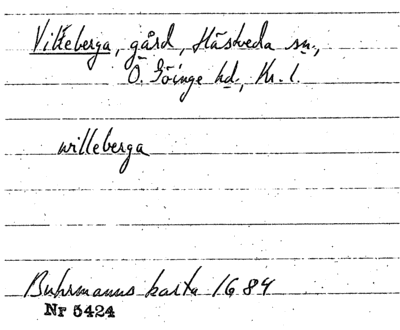 Vikeberga, gård, Hästveda sn.,
Ö. Göinge hd., Kr. l.
willeberga
Buhrmanns karta 1684
Nr 5424